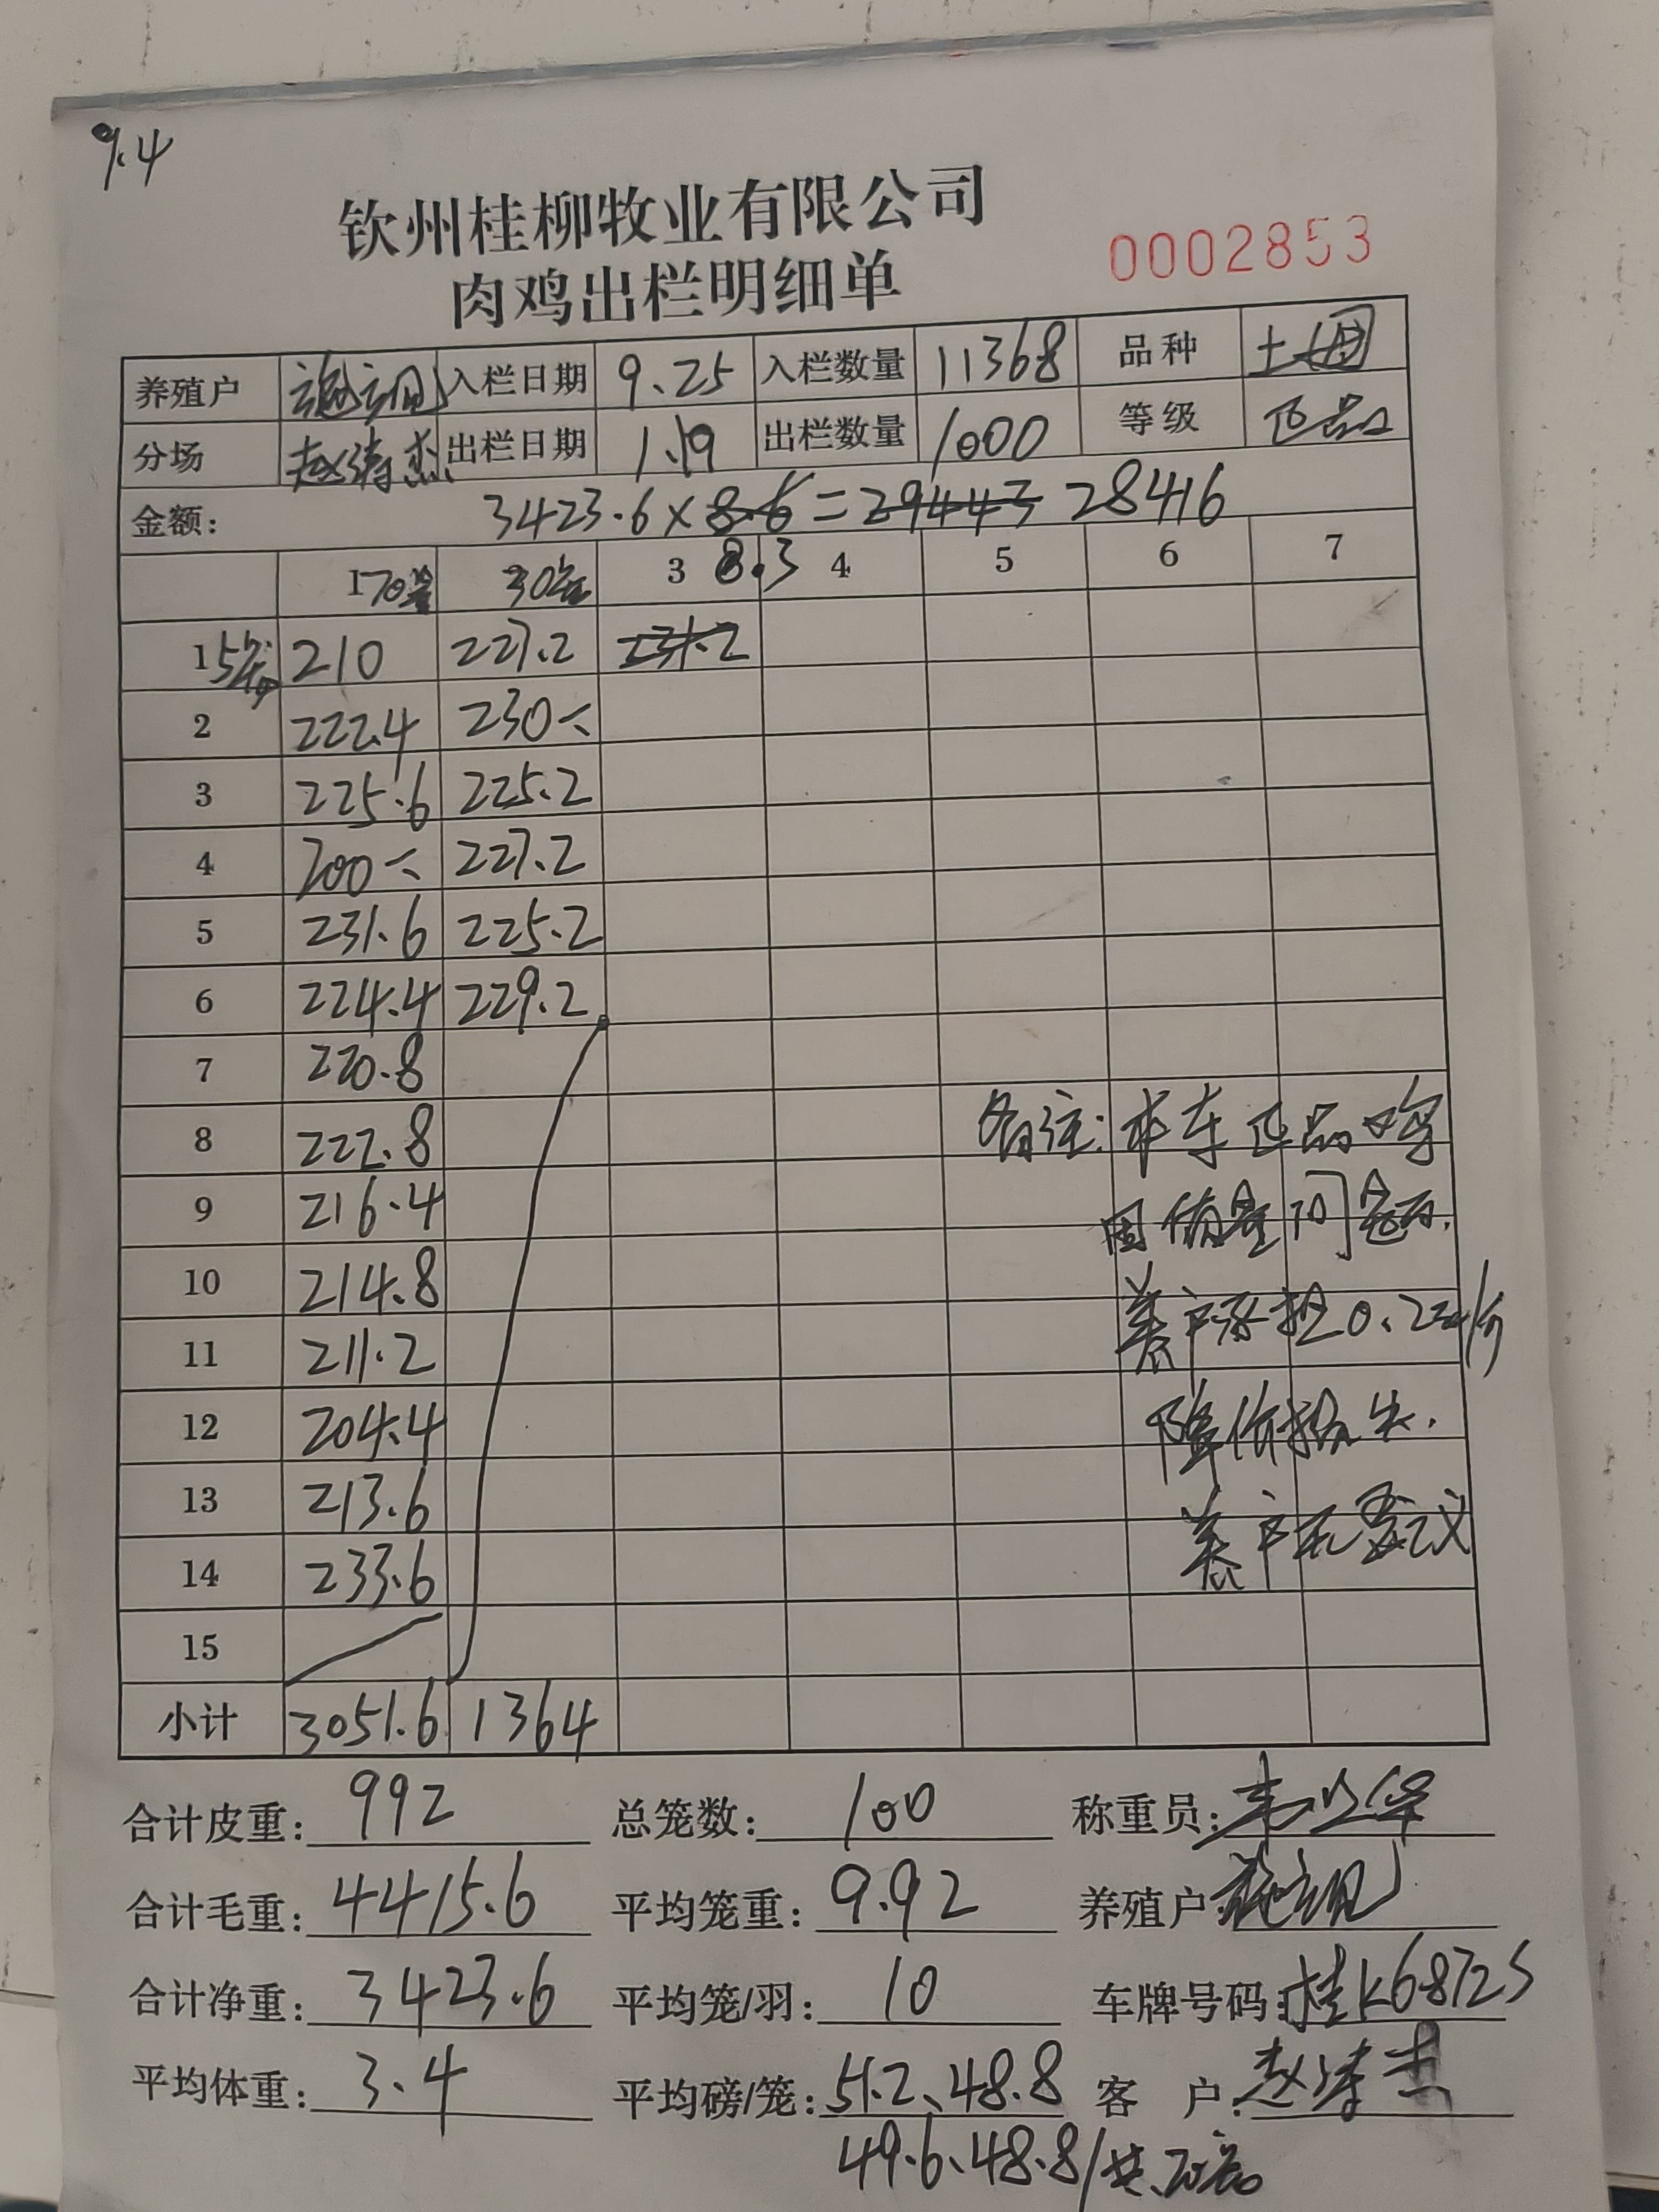 9.4
钦州桂柳牧业有限公司
肉鸡出栏明细单
0002853
养殖户 入栏日期 9.25 入栏数量 11368 品种 土
分场 赵涛杰 出栏日期 1.19 出栏数量 1000 等级 正品
金额: 3423.6×8.6=29443 28416
170 30 3 8.3 4 5 6 7
1 5 210 227.2 231.2
2 222.4 230
3 225.6 225.2
4 200 227.2
5 231.6 225.2
6 224.4 229.2
7 220.8
8 222.8 备注:本车正品鸡
9 216.4 因 问
10 214.8 养户承担0.2
11 211.2
12 204.4 降价损失.
13 213.6
14 233.6 养户无异议
15
小计 3051.6 1364
合计皮重: 992 总笼数: 100 称重员:
合计毛重: 4415.6 平均笼重: 9.92 养殖户:
合计净重: 3423.6 平均笼/羽: 10 车牌号码:桂K68725
平均体重: 3.4 平均磅/笼: 51.2、48.8 客 户: 赵涛杰
49.6、48.8/共